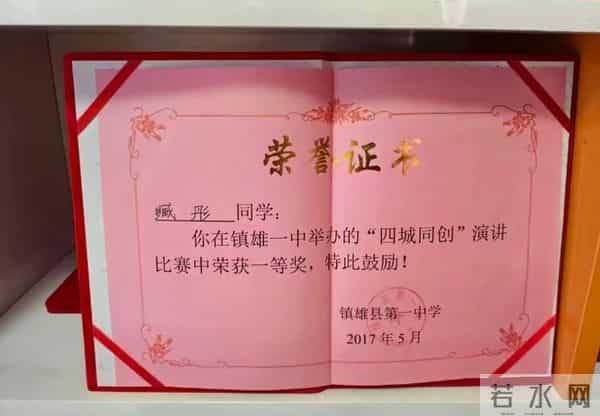 荣誉证书
臧彤 同学:
你在镇雄一中举办的“四城同创”演讲
比赛中荣获一等奖,特此鼓励!
镇雄县第一中学
2017年5月
若水网